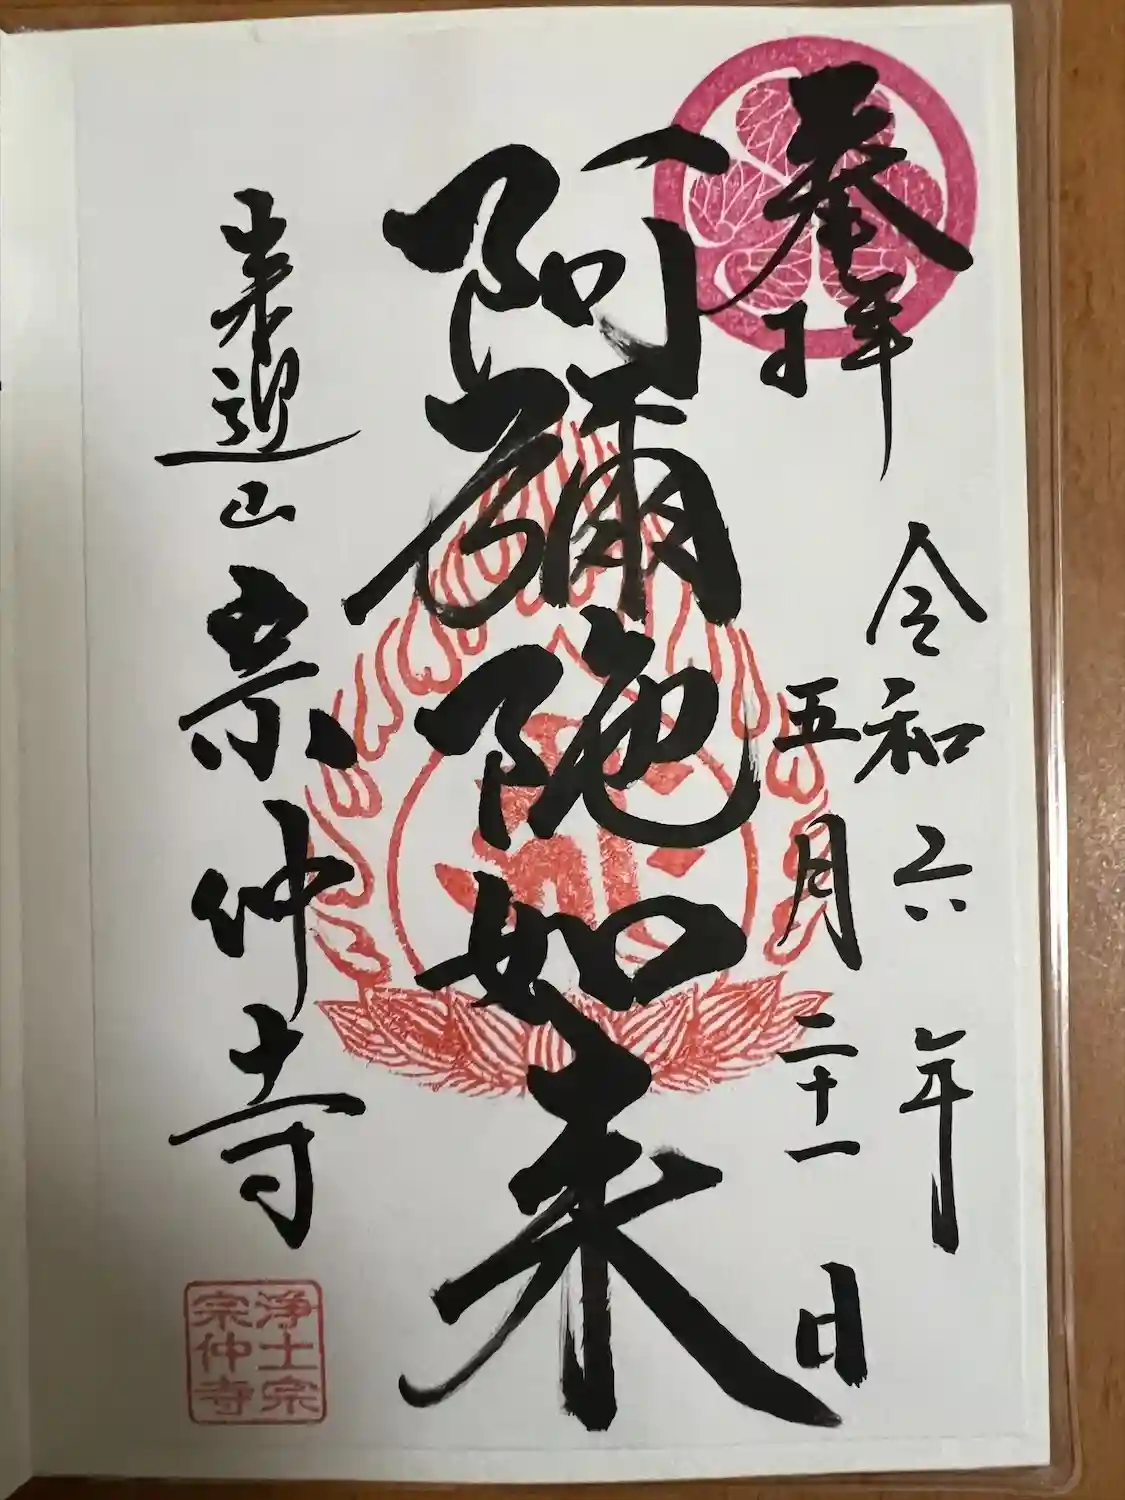 奉拝
令和六年
五月二十一日
阿彌陀如来
来迎山
宗仲寺
浄土宗
宗仲寺